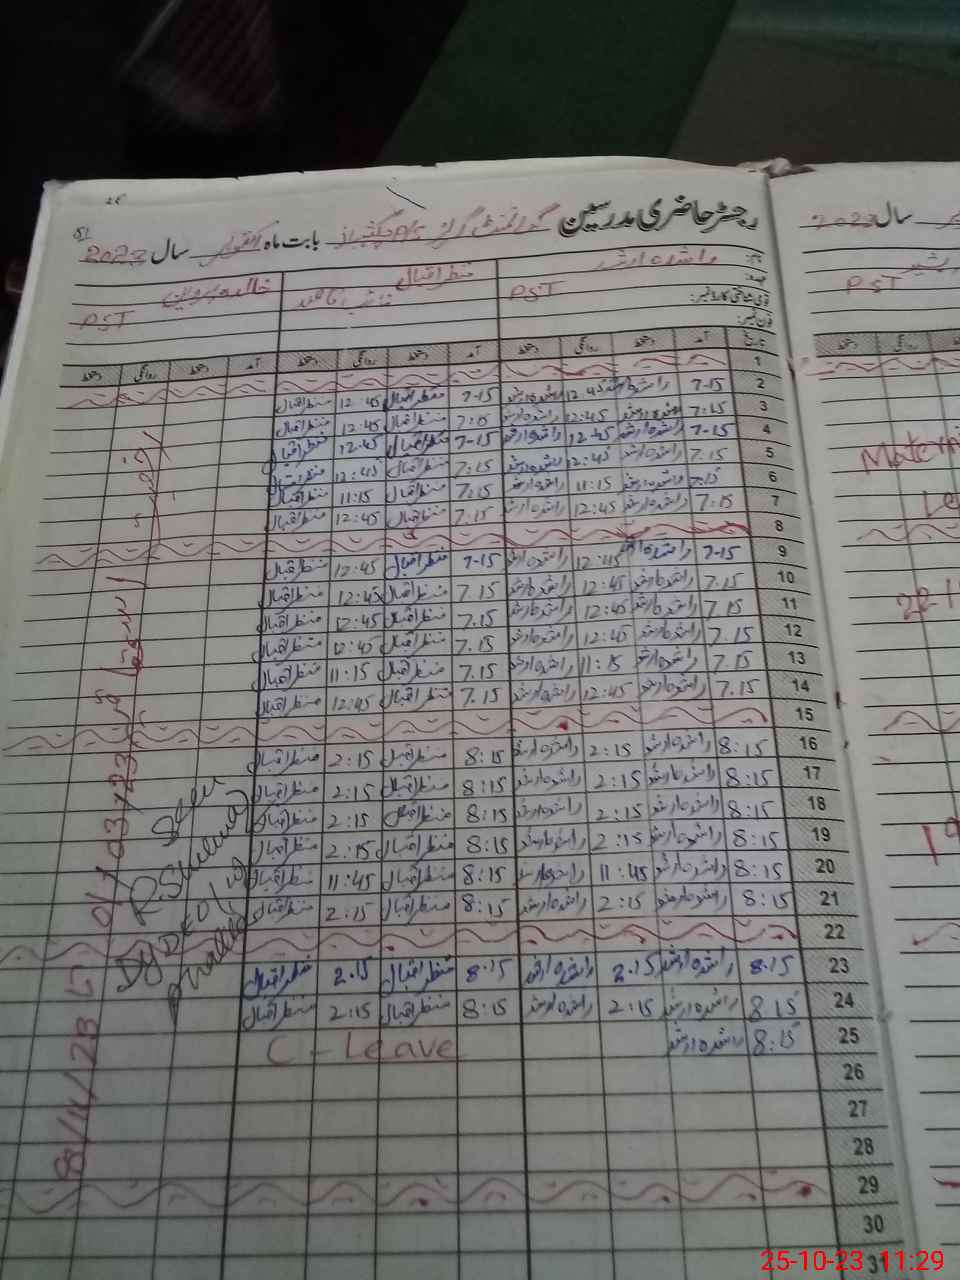 51
رجسٹر حاضری مدرسین گورنمنٹ گرلز P/S بابت ماہ اکتوبر سال 2023
سال 2023
نام: راشدہ ارشد منظر اقبال خالدہ پروین
عہدہ: PST PST
PST
قومی شناختی کارڈ نمبر:
فون نمبر:
تاریخ آمد دستخط روانگی دستخط آمد دستخط روانگی دستخط آمد دستخط روانگی دستخط
1
2 7-15 راشدہ ارشد 12:45 راشدہ ارشد 7-15 منظر اقبال 12:45 منظر اقبال
3 7:15 راشدہ ارشد 12:45 راشدہ ارشد 7:15 منظر اقبال 12:45 منظر اقبال
4 7-15 راشدہ ارشد 12:45 راشدہ ارشد 7-15 منظر اقبال 12:45 منظر اقبال
5 7.15 راشدہ ارشد 12:45 راشدہ ارشد 7:15 منظر اقبال 12:45 منظر اقبال
6 7:15 راشدہ ارشد 11:15 راشدہ ارشد 7.15 منظر اقبال 11:15 منظر اقبال
7 7:15 راشدہ ارشد 12:45 راشدہ ارشد 7.15 منظر اقبال 12:45 منظر اقبال
8
9 7-15 راشدہ ارشد 12:45 راشدہ ارشد 7-15 منظر اقبال 12:45 منظر اقبال
10 7.15 راشدہ ارشد 12:45 راشدہ ارشد 7.15 منظر اقبال 12:45 منظر اقبال
11 7.15 راشدہ ارشد 12:45 راشدہ ارشد 7.15 منظر اقبال 12:45 منظر اقبال
12 7.15 راشدہ ارشد 12:45 راشدہ ارشد 7.15 منظر اقبال 12:45 منظر اقبال
13 7.15 راشدہ ارشد 11:15 راشدہ ارشد 7.15 منظر اقبال 11:15 منظر اقبال
14 7.15 راشدہ ارشد 12:45 راشدہ ارشد 7.15 منظر اقبال 12:45 منظر اقبال
15
16 8:15 راشدہ ارشد 2:15 راشدہ ارشد 8:15 منظر اقبال 2:15 منظر اقبال
17 8:15 راشدہ ارشد 2:15 راشدہ ارشد 8:15 منظر اقبال 2:15 منظر اقبال
18 8:15 راشدہ ارشد 2:15 راشدہ ارشد 8:15 منظر اقبال 2:15 منظر اقبال
19 8:15 راشدہ ارشد 2:15 راشدہ ارشد 8:15 منظر اقبال 2:15 منظر اقبال
20 8:15 راشدہ ارشد 11:45 راشدہ ارشد 8:15 منظر اقبال 11:45 منظر اقبال
21 8:15 راشدہ ارشد 2:15 راشدہ ارشد 8:15 منظر اقبال 2:15 منظر اقبال
22
23 8.15 راشدہ ارشد 2.15 راشدہ ارشد 8.15 منظر اقبال 2.15 منظر اقبال
24 8.15 راشدہ ارشد 2:15 راشدہ ارشد 8:15 منظر اقبال 2:15 منظر اقبال
25 8:15 راشدہ ارشد C - Leave
26
27
28
29
30
31
Seen
DyDEO
25-10-23 11:29